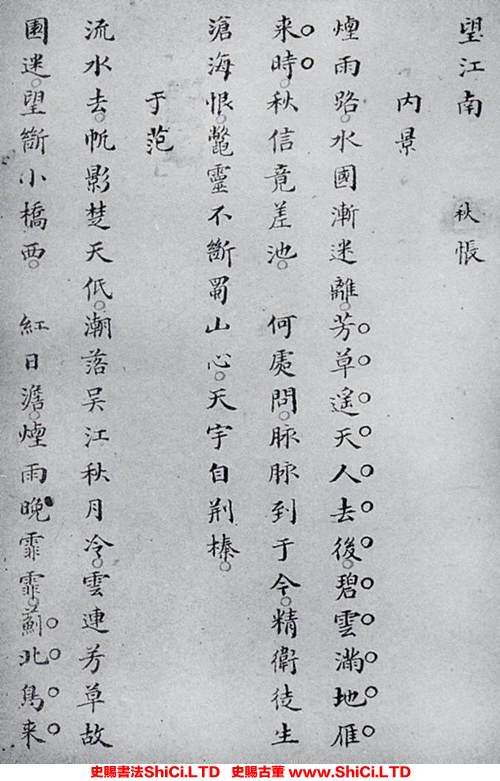 望江南 秋悵
內景
煙雨路水國漸迷離芳草遙天人去後碧雲滿地雁
来時秋信竟差池 何處問脉脉到于今精衛徒生
滄海恨鼈靈不斷蜀山心天宇自荆榛
于范
流水去帆影楚天低潮落吴江秋月冷雲連芳草故
國迷望斷小橋西 紅日澹煙雨晚霏霏薊北鳥来
史賜書法ShiCi.LTD 史賜古董 www.ShiCi.LTD